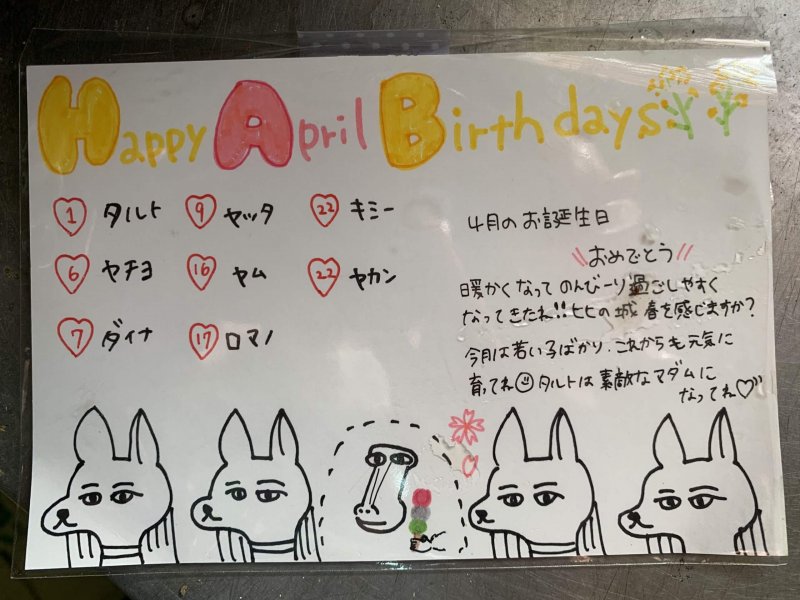 Happy April Birthdays
1 タルト 9 ヤッタ 22 キミー
6 ヤチヨ 16 ヤム 22 ヤカン
7 ダイナ 17 ロマノ
4月のお誕生日
\\おめでとう//
暖かくなって のんびーり過ごしやすく
なってきたね!! ヒヒの城 春を感じますか?
今月は若い子ばかり、これからも元気に
育ってね タルトは素敵なマダムに
なってね♡